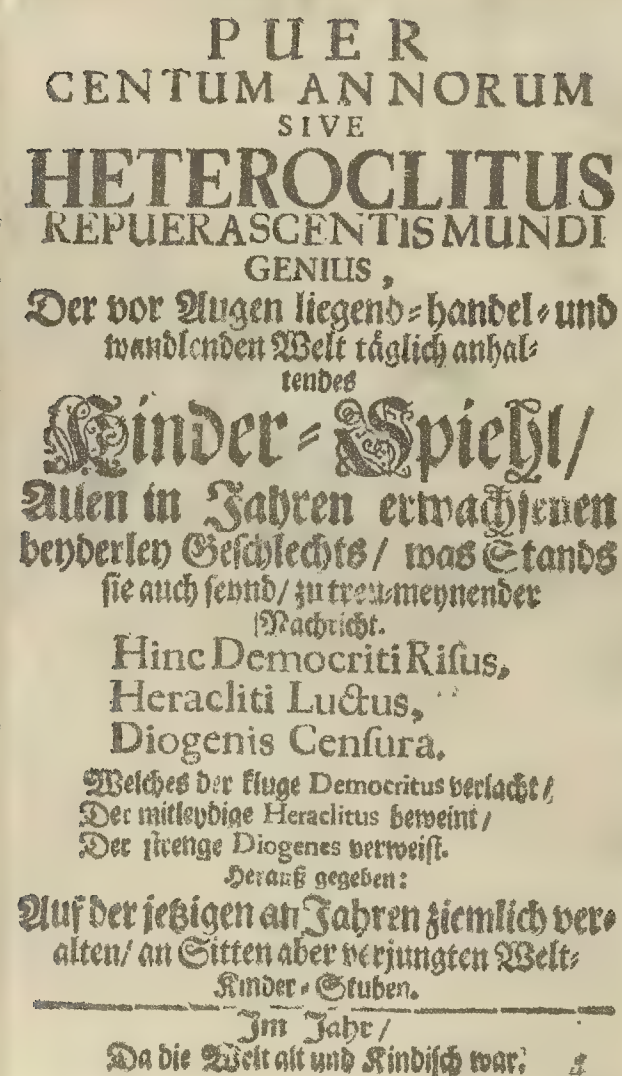 PUER
CENTUM ANNORUM
SIVE
HETEROCLITUS
REPUERASCENTIS MUNDI
GENIUS,
Der vor Augen liegend-handel-und
wandlenden Welt täglich anhal-
tendes
Kinder-Spiehl/
Allen in Jahren erwachsenen
beyderley Geschlechts/ was Stands
sie auch seynd/ zu treu-meynender
Nachricht.
Hinc Democriti Risus,
Heracliti Luctus,
Diogenis Censura.
Welches der kluge Democritus verlacht/
Der mitleydige Heraclitus beweint/
Der strenge Diogenes verweist.
Herauß gegeben:
Auf der jetzigen an Jahren ziemlich ver-
alten/ an Sitten aber verjungten Welt-
Kinder-Stuben.
Im Jahr/
Da die Welt alt und Kindisch war.